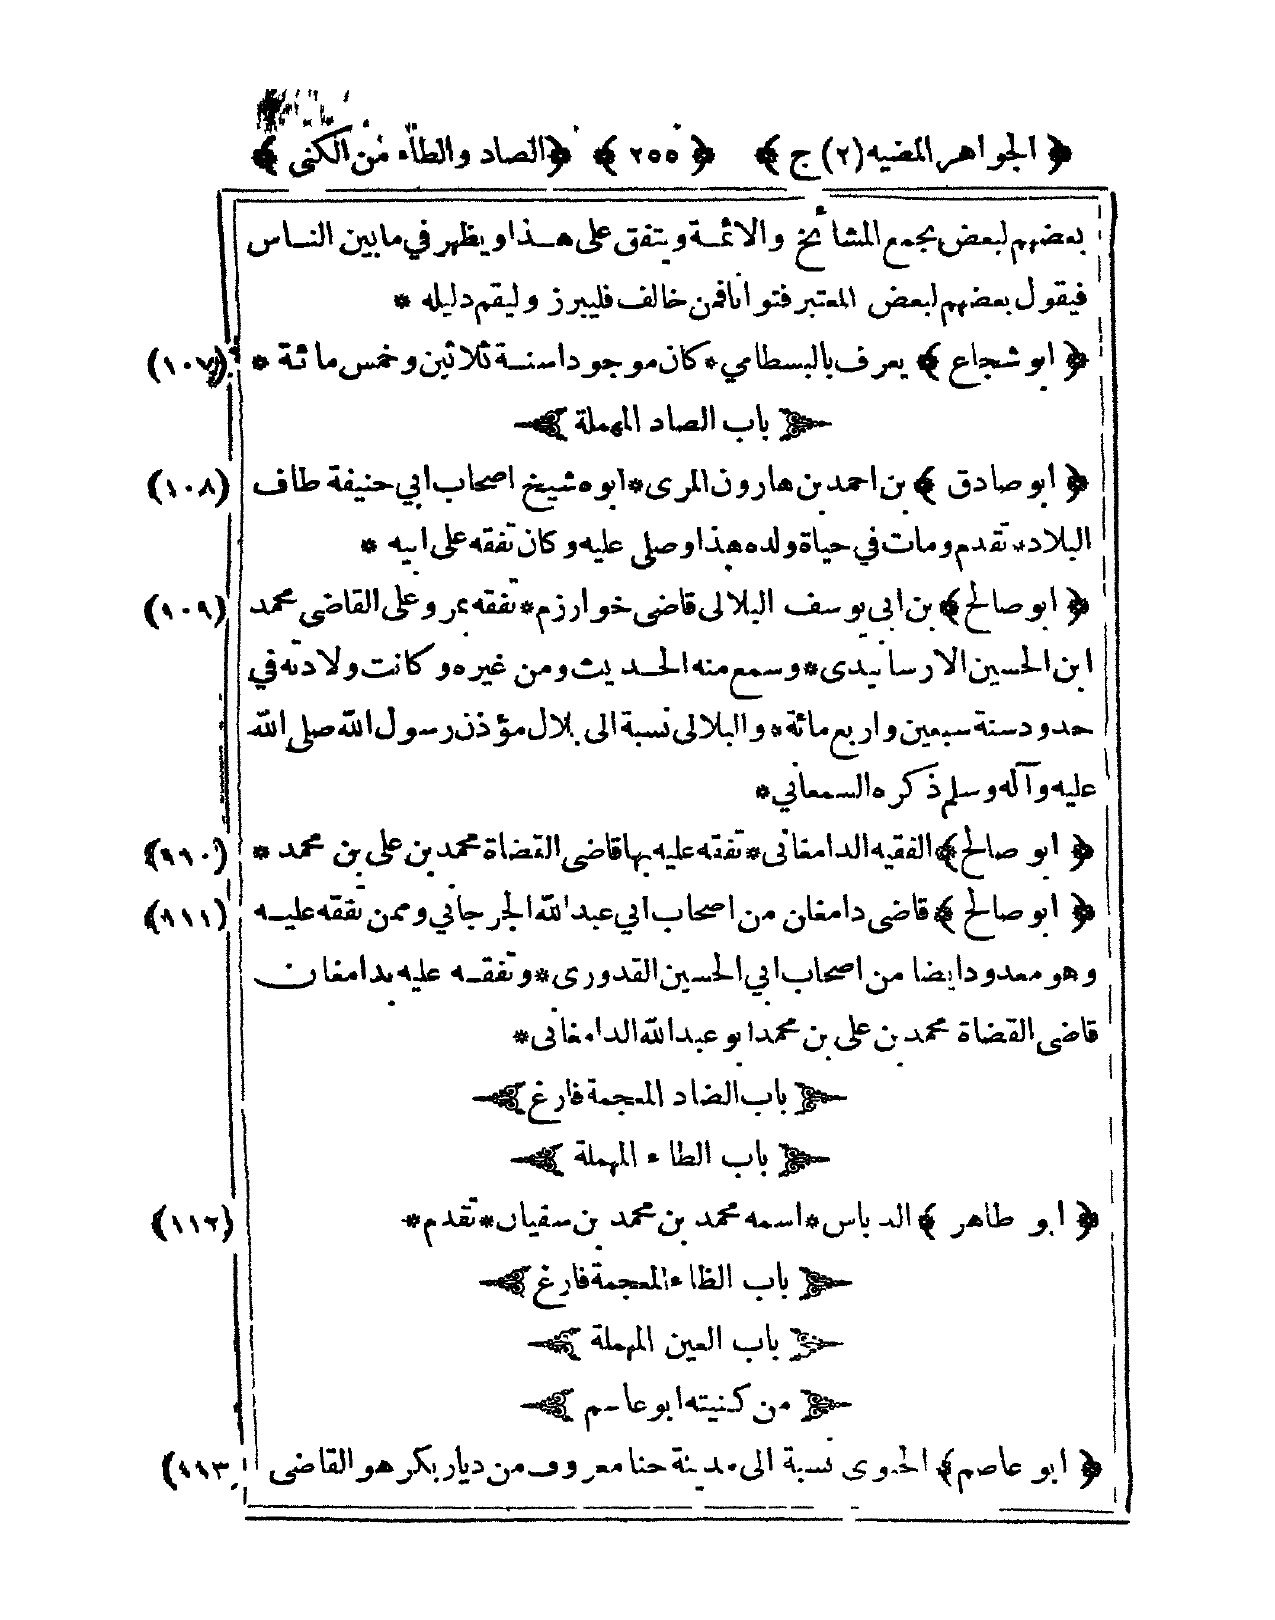 ﴿ الجواهر المضيه (٢) ج ﴾ ﴿ ٢٥٥ ﴾ ﴿ الصاد والطاء من الكنى ﴾
بعضهم لبعض بجمع المشائخ والائمة ويتفق على هذا ويظهر في مابين الناس
فيقول بعضهم لبعض المعتبر فتوانا فمن خالف فليبرز وليقم دليله *
﴿ ابو شجاع ﴾ يعرف بالبسطامي * كان موجودا سنة ثلاثين وخمس مائة * (١٠٧)
باب الصاد المهملة
﴿ ابو صادق ﴾ بن احمد بن هارون المرى * ابوه شيخ اصحاب ابي حنيفة طاف (١٠٨)
البلاد * تقدم ومات في حياة ولده هذا وصلى عليه وكان تفقه على ابيه *
﴿ ابو صالح ﴾ بن ابى يوسف البلالى قاضى خوارزم * تفقه بمر وعلى القاضى محمد (١٠٩)
ابن الحسين الارسابيدى * وسمع منه الحديث ومن غيره وكانت ولادته في
حدود سنة سبعين واربع مائة * والبلالى نسبة الى بلال مؤذن رسول الله صلى الله
عليه وآله وسلم ذكره السمعاني *
﴿ ابو صالح ﴾ الفقيه الدامغانى * تفقه عليه بها قاضى القضاة محمد بن على بن محمد * (١١٠)
﴿ ابو صالح ﴾ قاضى دامغان من اصحاب ابي عبد الله الجرجاني وممن تفقه عليه (١١١)
وهو معدود ايضا من اصحاب ابي الحسين القدورى * وتفقه عليه بدامغان
قاضى القضاة محمد بن على بن محمد ابو عبد الله الدامغانى *
باب الضاد المعجمة فارغ
باب الطاء المهملة
﴿ ابو طاهر ﴾ الدباس * اسمه محمد بن محمد بن سفيان * تقدم * (١١٢)
باب الظاء المعجمة فارغ
باب العين المهملة
من كنيته ابو عاصم
﴿ ابو عاصم ﴾ الحنوى نسبة الى مدينة حنا معروف من ديار بكر هو القاضى (١١٣)